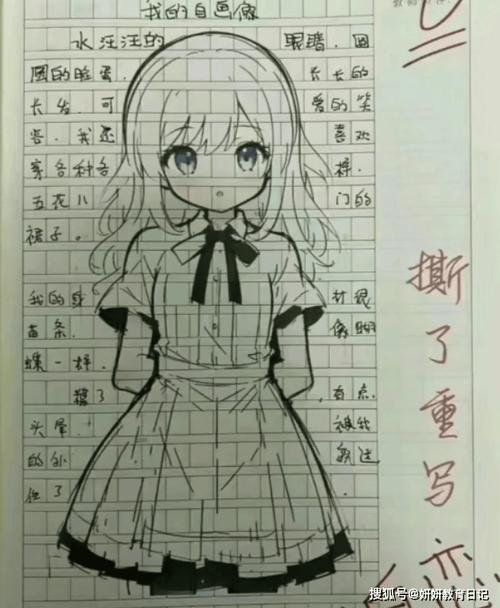 我的自画像
水汪汪的 眼睛，圆
圆的脸蛋， 长长的
长发，可 爱的笑
容，我还 喜欢
穿各种各 样，
五花八 门的
裙子。
我的身 材很
苗条， 像蝴
蝶一样。
糟了 ，有点
头晕 被我
的外 貌迷
住了 。
撕了重写
搜狐号@妍妍教育日记